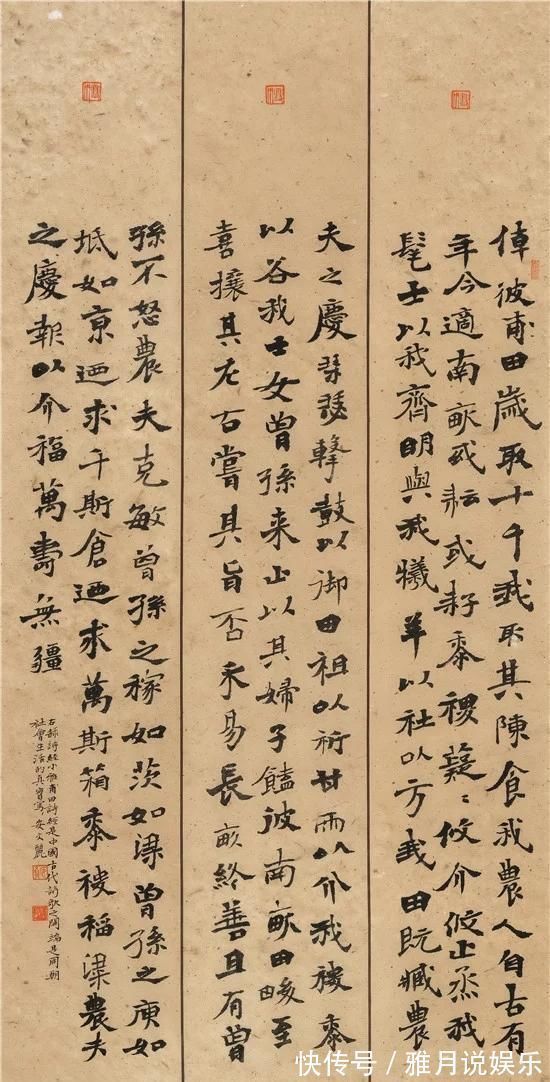 倬彼甫田歲取十千我取其陳食我農人自古有
年今適南畝或耘或耔黍稷薿〻攸介攸止烝我
髦士以我齊明與我犧羊以社以方我田既臧農
夫之慶琴瑟擊鼓以御田祖以祈甘雨以介我稷黍
以谷我士女曾孫来止以其婦子饁彼南畝田畯至
喜攘其左右嘗其旨否禾易長畝終善且有曾
孫不怒農夫克敏曾孫之稼如茨如梁曾孫之庾如
坻如京迺求千斯倉迺求萬斯箱黍稷稻粱農夫
之慶報以介福萬壽無疆
右錄詩經小雅甫田詩經是中國古代詩歌之開端是周朝
社會生活的真實寫 安文麗
快传号／雅月说娱乐